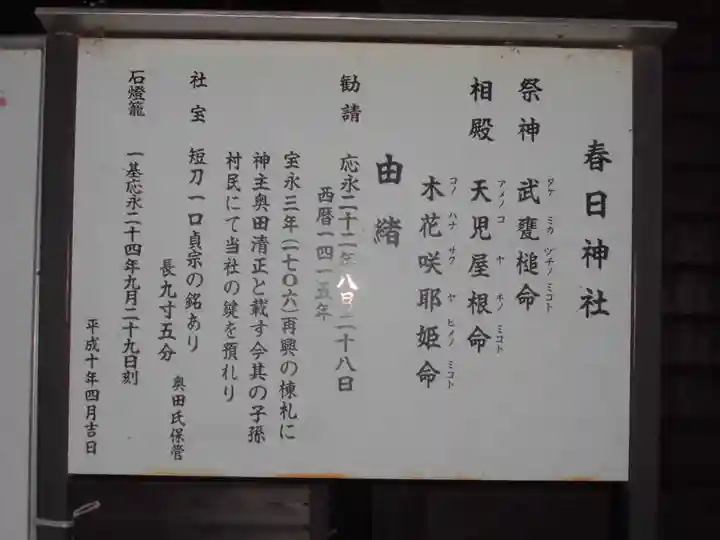 春日神社
祭神 武甕槌命
タケ ミカ ヅチノ ミコト
相殿 天児屋根命
アメノ コ ヤ ネノ ミコト
木花咲耶姫命
コノ ハナ サク ヤ ヒメノ ミコト
由緒
勧請 応永二十二年八月二十八日
西暦一四一五年
宝永三年(一七〇六)再興の棟札に
神主奥田清正と載す今其の子孫
村民にて当社の鍵を預れり
社宝 短刀一口貞宗の銘あり
長九寸五分
奥田氏保管
石燈籠 一基応永二十四年九月二十九日刻
平成十年四月吉日